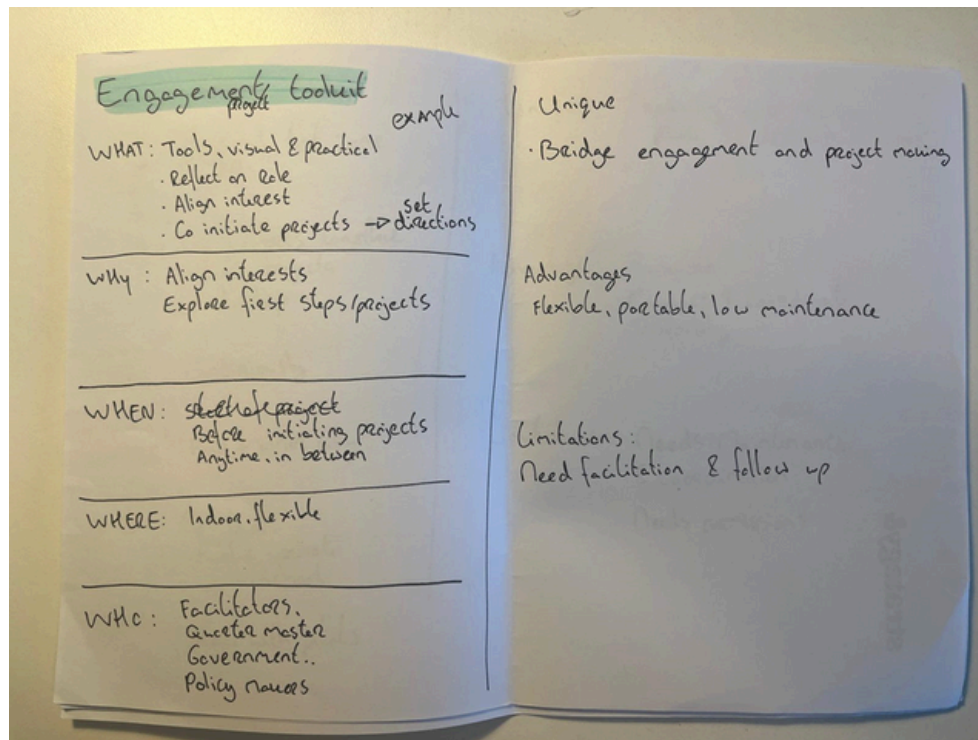 Engagement toolkit
project
example
WHAT: Tools, visual & practical
· Reflect on role
· Align interest
set
· Co initiate projects → directions
WHY: Align interests
Explore first steps/projects
WHEN: start of project
Before initiating projects
Anytime, in between
WHERE: Indoor, flexible
WHO: Facilitators,
Quarter master
Government..
Policy makers
Unique
· Bridge engagement and project making
Advantages
Flexible, portable, low maintenance
Limitations:
Need facilitation & follow up